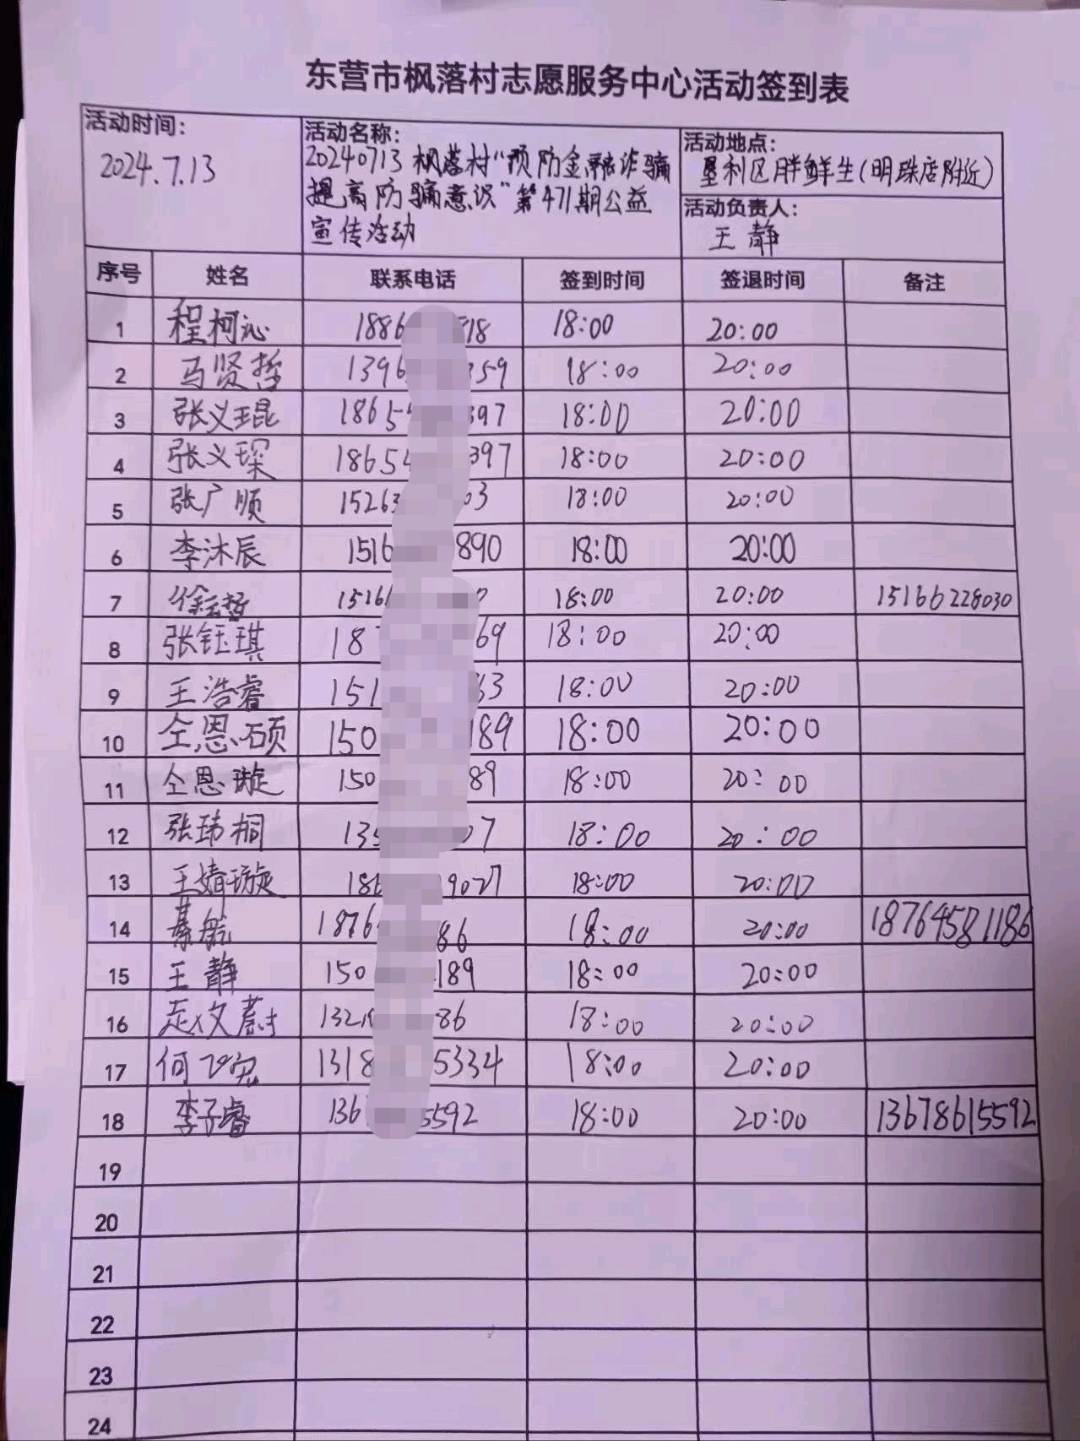 东营市枫落村志愿服务中心活动签到表
活动时间: 2024.7.13
活动名称: 20240713 枫落村“预防金融诈骗
提高防骗意识”第471期公益
宣传活动
活动地点: 垦利区胖鲜生(明珠店附近)
活动负责人: 王静
序号 姓名 联系电话 签到时间 签退时间 备注
1 程柯沁 1886 818 18:00 20:00
2 马贤哲 1396 359 18:00 20:00
3 张义琨 1865 397 18:00 20:00
4 张义琛 18654 397 18:00 20:00
5 张广顺 15263 03 18:00 20:00
6 李沐辰 1516 890 18:00 20:00
7 1516 0 18:00 20:00 15166228030
8 张钰琪 187 69 18:00 20:00
9 王浩睿 151 63 18:00 20:00
10 仝恩硕 150 189 18:00 20:00
11 仝恩璇 150 89 18:00 20:00
12 张玮桐 135 07 18:00 20:00
13 王婧璇 186 9027 18:00 20:00
14 航 1876 86 18:00 20:00 18764581186
15 王静 150 189 18:00 20:00
16 132 86 18:00 20:00
17 何 1318 5334 18:00 20:00
18 李子睿 136 5592 18:00 20:00 13678615592
19
20
21
22
23
24